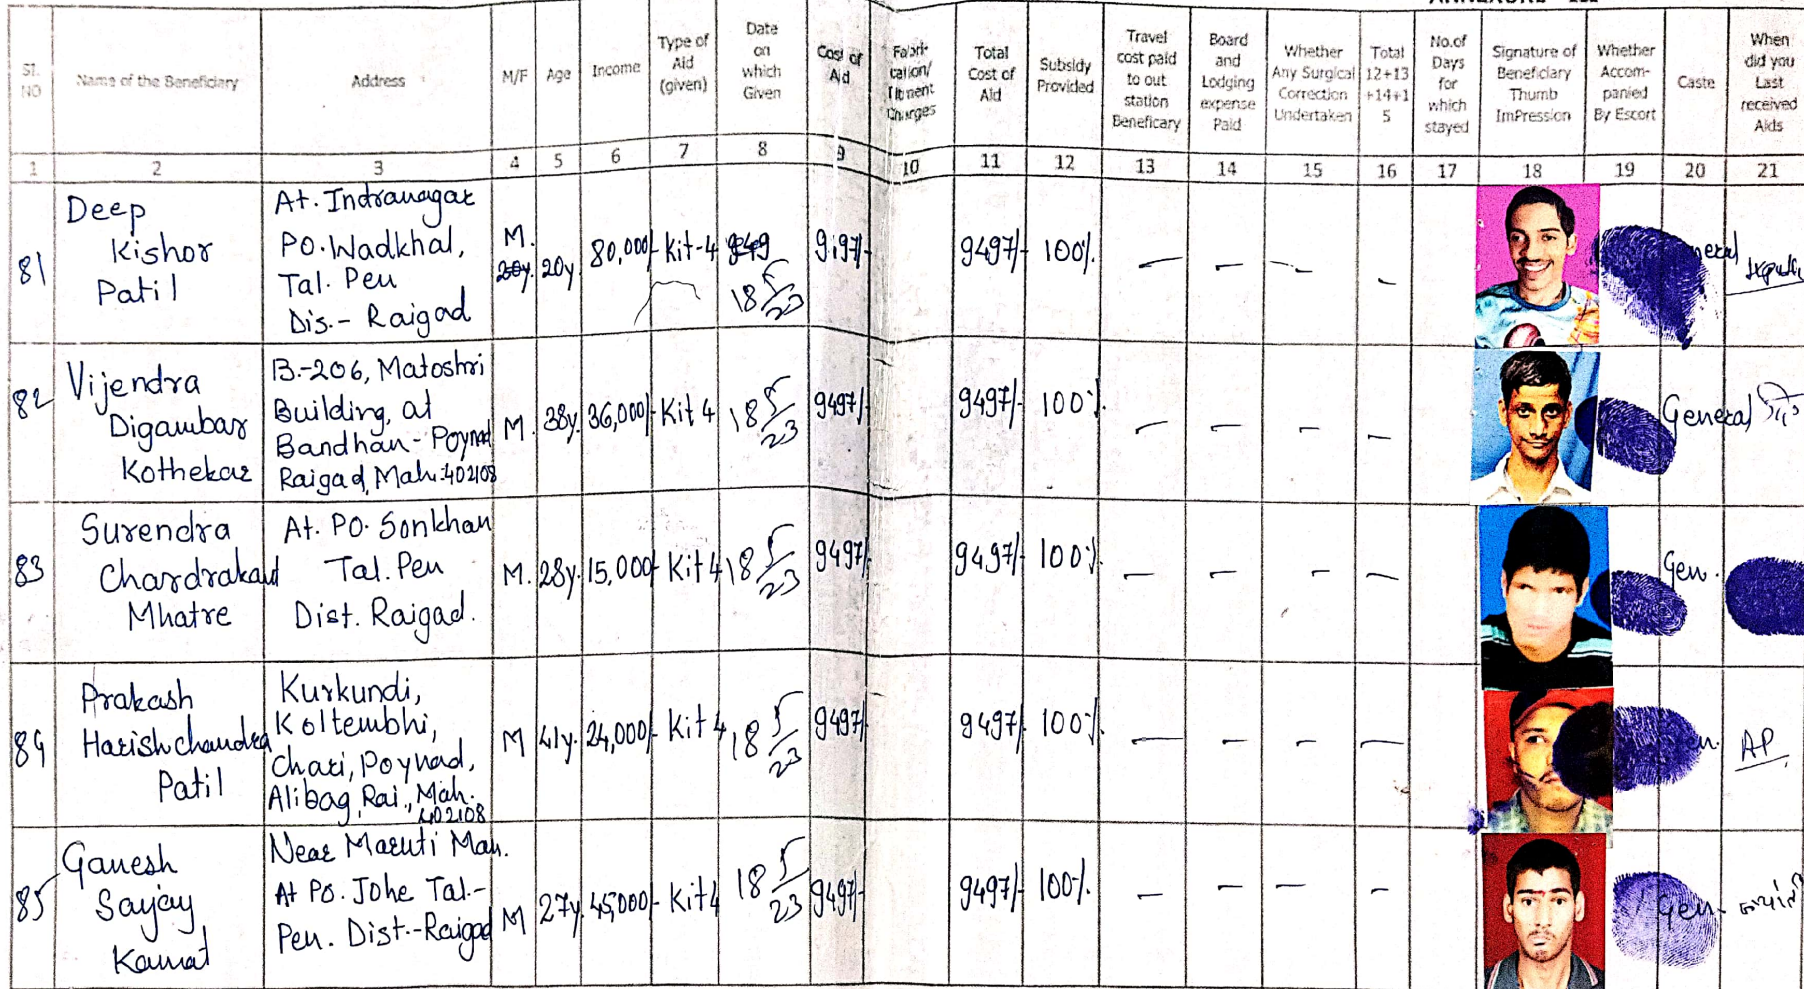 ANNEXURE - III
Sl. NO
Name of the Beneficiary
Address
M/F
Age
Income
Type of Aid (given)
Date on which Given
Cost of Aid
Fabrication/ Fitment Charges
Total Cost of Aid
Subsidy Provided
Travel cost paid to out station Beneficary
Board and Lodging expense Paid
Whether Any Surgical Correction Undertaken
Total 12+13+14+15
No.of Days for which stayed
Signature of Beneficiary Thumb ImPression
Whether Accom-panied By Escort
Caste
When did you Last received Aids
1 2 3 4 5 6 7 8 9 10 11 12 13 14 15 16 17 18 19 20 21
81 Deep Kishor Patil
At. Indranagar
PO. Wadkhal,
Tal. Pen
Dis.- Raigad
M. 20y. 80,000/- Kit-4 18/5/23 9497/- 9497/- 100% — — — —
82 Vijendra Digambar Kothekar
B-206, Matoshri
Building, at
Bandhan- Poynad
Raigad, Mah. 402108
M. 38y. 36,000/- Kit 4 18/5/23 9497/- 9497/- 100% — — — — General
83 Surendra Chandrakant Mhatre
At. PO. Sonkhan
Tal. Pen
Dist. Raigad.
M. 28y. 15,000/- Kit 4 18/5/23 9497/- 9497/- 100% — — — — Gen.
84 Prakash Harishchandra Patil
Kurkundi,
Koltembhi,
Chari, Poynad,
Alibag, Rai., Mah.
402108
M 41y. 24,000/- Kit 4 18/5/23 9497/- 9497/- 100% — — — — AP
85 Ganesh Sanjay Kamat
Near Maruti Man.
At Po. Johe Tal.-
Pen. Dist.-Raigad
M 27y. 45,000/- Kit 4 18/5/23 9497/- 9497/- 100% — — — — Gen.